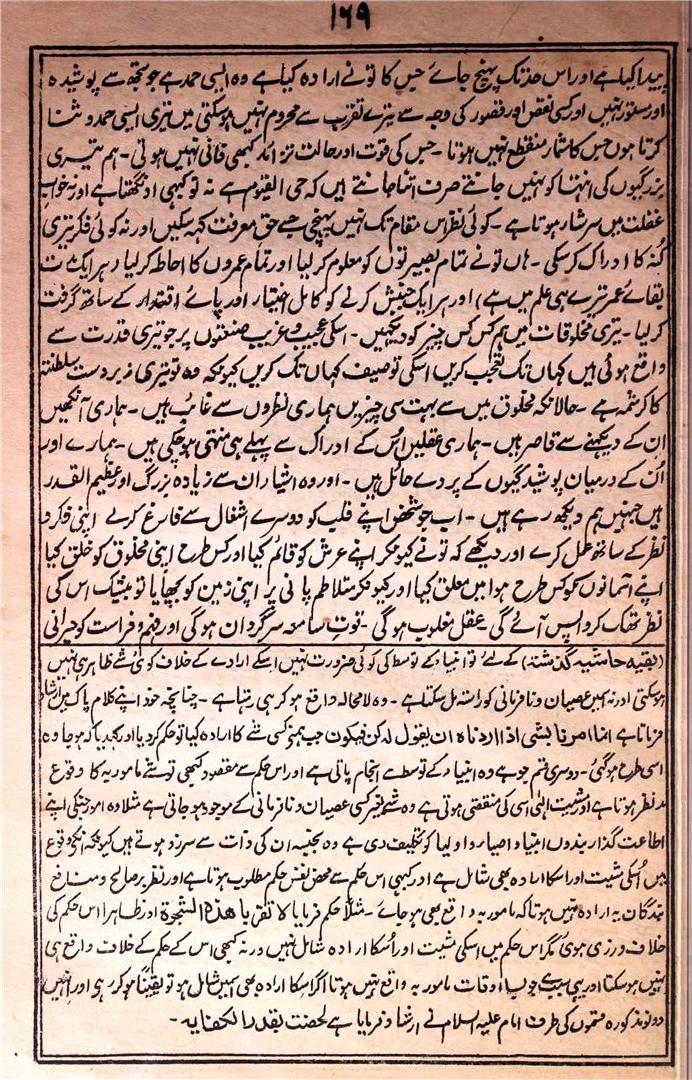 ۱۶۹
پیدا کیا ہے اور اس حد تک پہنچ جائے جس کا تونے ارادہ کیا ہے وہ ایسی حمد ہے جو تجھ سے پوشیدہ
اور مستور نہیں اور کسی نقص اور قصور کی وجہ سے تیرے تقرب سے محروم نہیں ہوسکتی میں تیری ایسی حمد و ثنا
کرتا ہوں جس کا شمار منقطع نہیں ہوتا ۔ جس کی قوت اور حالت تزائد کبھی فانی نہیں ہوتی ۔ ہم تیری
بزرگیوں کی انتہا کو نہیں جانتے صرف اتنا جانتے ہیں کہ حی القیوم ہے نہ تو کبھی اونگھتا ہے اور نہ خواب
غفلت میں سرشار ہوتا ہے ۔ کوئی نظر اس مقام تک نہیں پہنچی جسے حق معرفت کہہ سکیں اور نہ کوئی فکر تیری
کنہ کا ادراک کرسکی ۔ ہاں تونے تمام بصیرتوں کو معلوم کرلیا اور تمام عمروں کا احاطہ کرلیا (ہر ایک مدت
بقائے عمر تیرے ہی علم میں ہے) اور ہر ایک جنبش کرنے کو کامل اختیار اور پائے اقتدار کے ساتھ گرفت
کرلیا ۔ تیری مخلوقات میں ہم کس کس چیز کو دیکھیں ۔ اسکی عجیب و غریب صنعتوں پر جو تیری قدرت سے
واقع ہوئی ہیں کہاں تک تعجب کریں اسکی توصیف کہاں تک کریں کیونکہ وہ تو تیری زبردست سلطنت
کا کرشمہ ہے ۔ حالانکہ مخلوق میں سے بہت سی چیزیں ہماری نظروں سے غائب ہیں ۔ ہماری آنکھیں
ان کے دیکھنے سے قاصر ہیں ۔ ہماری عقلیں اُس کے ادراک سے پہلے ہی منتہی ہوچکی ہیں ۔ ہمارے اور
اُن کے درمیان پوشیدگیوں کے پردے حائل ہیں ۔ اور وہ اشیار ان سے زیادہ بزرگ اور عظیم القدر
ہیں جنہیں ہم دیکھ رہے ہیں ۔ اب جو شخص اپنے قلب کو دوسرے اشغال سے فارغ کرلے اپنی فکر و
نظر کے ساتھ عمل کرے اور دیکھے کہ تونے کیونکر اپنے عرش کو قائم کیا اور کس طرح اپنی مخلوق کو خلق کیا
اپنے آسمانوں کو کس طرح ہوا میں معلق کیا اور کیونکر متلاطم پانی پر اپنی زمین کو بچھایا تو بیشک اس کی
نظر تھک کر واپس آئے گی ۔ عقل مغلوب ہوگی ۔ قوت سامعہ سرگرداں ہوگی اور فہم و فراست کو حیرانی
(بقیہ حاشیہ گذشتہ) کے لئے تو انبیاء کے توسط کی کوئی ضرورت نہیں اسکے ارادے کے خلاف کوئی شے ظاہر ہی نہیں
ہوسکتی اور نہ اسمیں عصیان و نافرمانی کو راستہ مل سکتا ہے ۔ وہ لامحالہ واقع ہوکر ہی رہتا ہے ۔ چنانچہ خود اپنے کلام پاک میں ارشاد
فرماتا ہے انما امرنا بشی اذا اردناہ ان یقول لہ کن فیکون جب ہمنے کسی شے کا ارادہ کیا تو حکم کردیا اور کہدیا کہ ہوجا وہ
اسی طرح ہوگئی ۔ دوسری قسم جو ہے وہ انبیاء کے توسط سے انجام پاتی ہے اور اس حکم سے مقصود کبھی تو شے مامور بہ کا وقوع
مدنظر ہوتا ہے اور مشیت الٰہی اسی کی مقتضی ہوتی ہے وہ شے بغیر کسی عصیان و نافرمانی کے موجود ہوجاتی ہے مثلاً وہ امور جنکی اپنے
اطاعت گذار بندوں انبیا و اوصیاء و اولیا کو تکلیف دی ہے وہ بجنسہ ان کی ذات سے سرزد ہوتے ہیں کیونکہ انکے وقوع
میں اُسکی مشیت اور اسکا ارادہ بھی شامل ہے اور کبھی اس حکم سے محض نفس حکم مطلوب ہوتا ہے اور نظر بہ مصالح و منافع
بندگان یہ ارادہ نہیں ہوتا کہ مامور بہ واقع بھی ہوجائے ۔ مثلاً حکم فرمایا لا تقربا ھذہ الشجرة اور ظاہرا اس حکم کی
خلاف ورزی ہوئی مگر اس حکم میں اسکی مشیت اور اُسکا ارادہ شامل نہیں ورنہ کبھی اس کے حکم کے خلاف واقع ہی
نہیں ہوسکتا اور یہی سبب ہے جو اوقات مامور بہ واقع نہیں ہوتا اگر اسکا ارادہ بھی اسمیں شامل ہو تو یقیناً ہوکر رہی اور انہیں
دونو مذکورہ قسموں کی طرف امام علیہ السلام نے ارشاد فرمایا ہے لحضت بقدر الکفایہ ۔